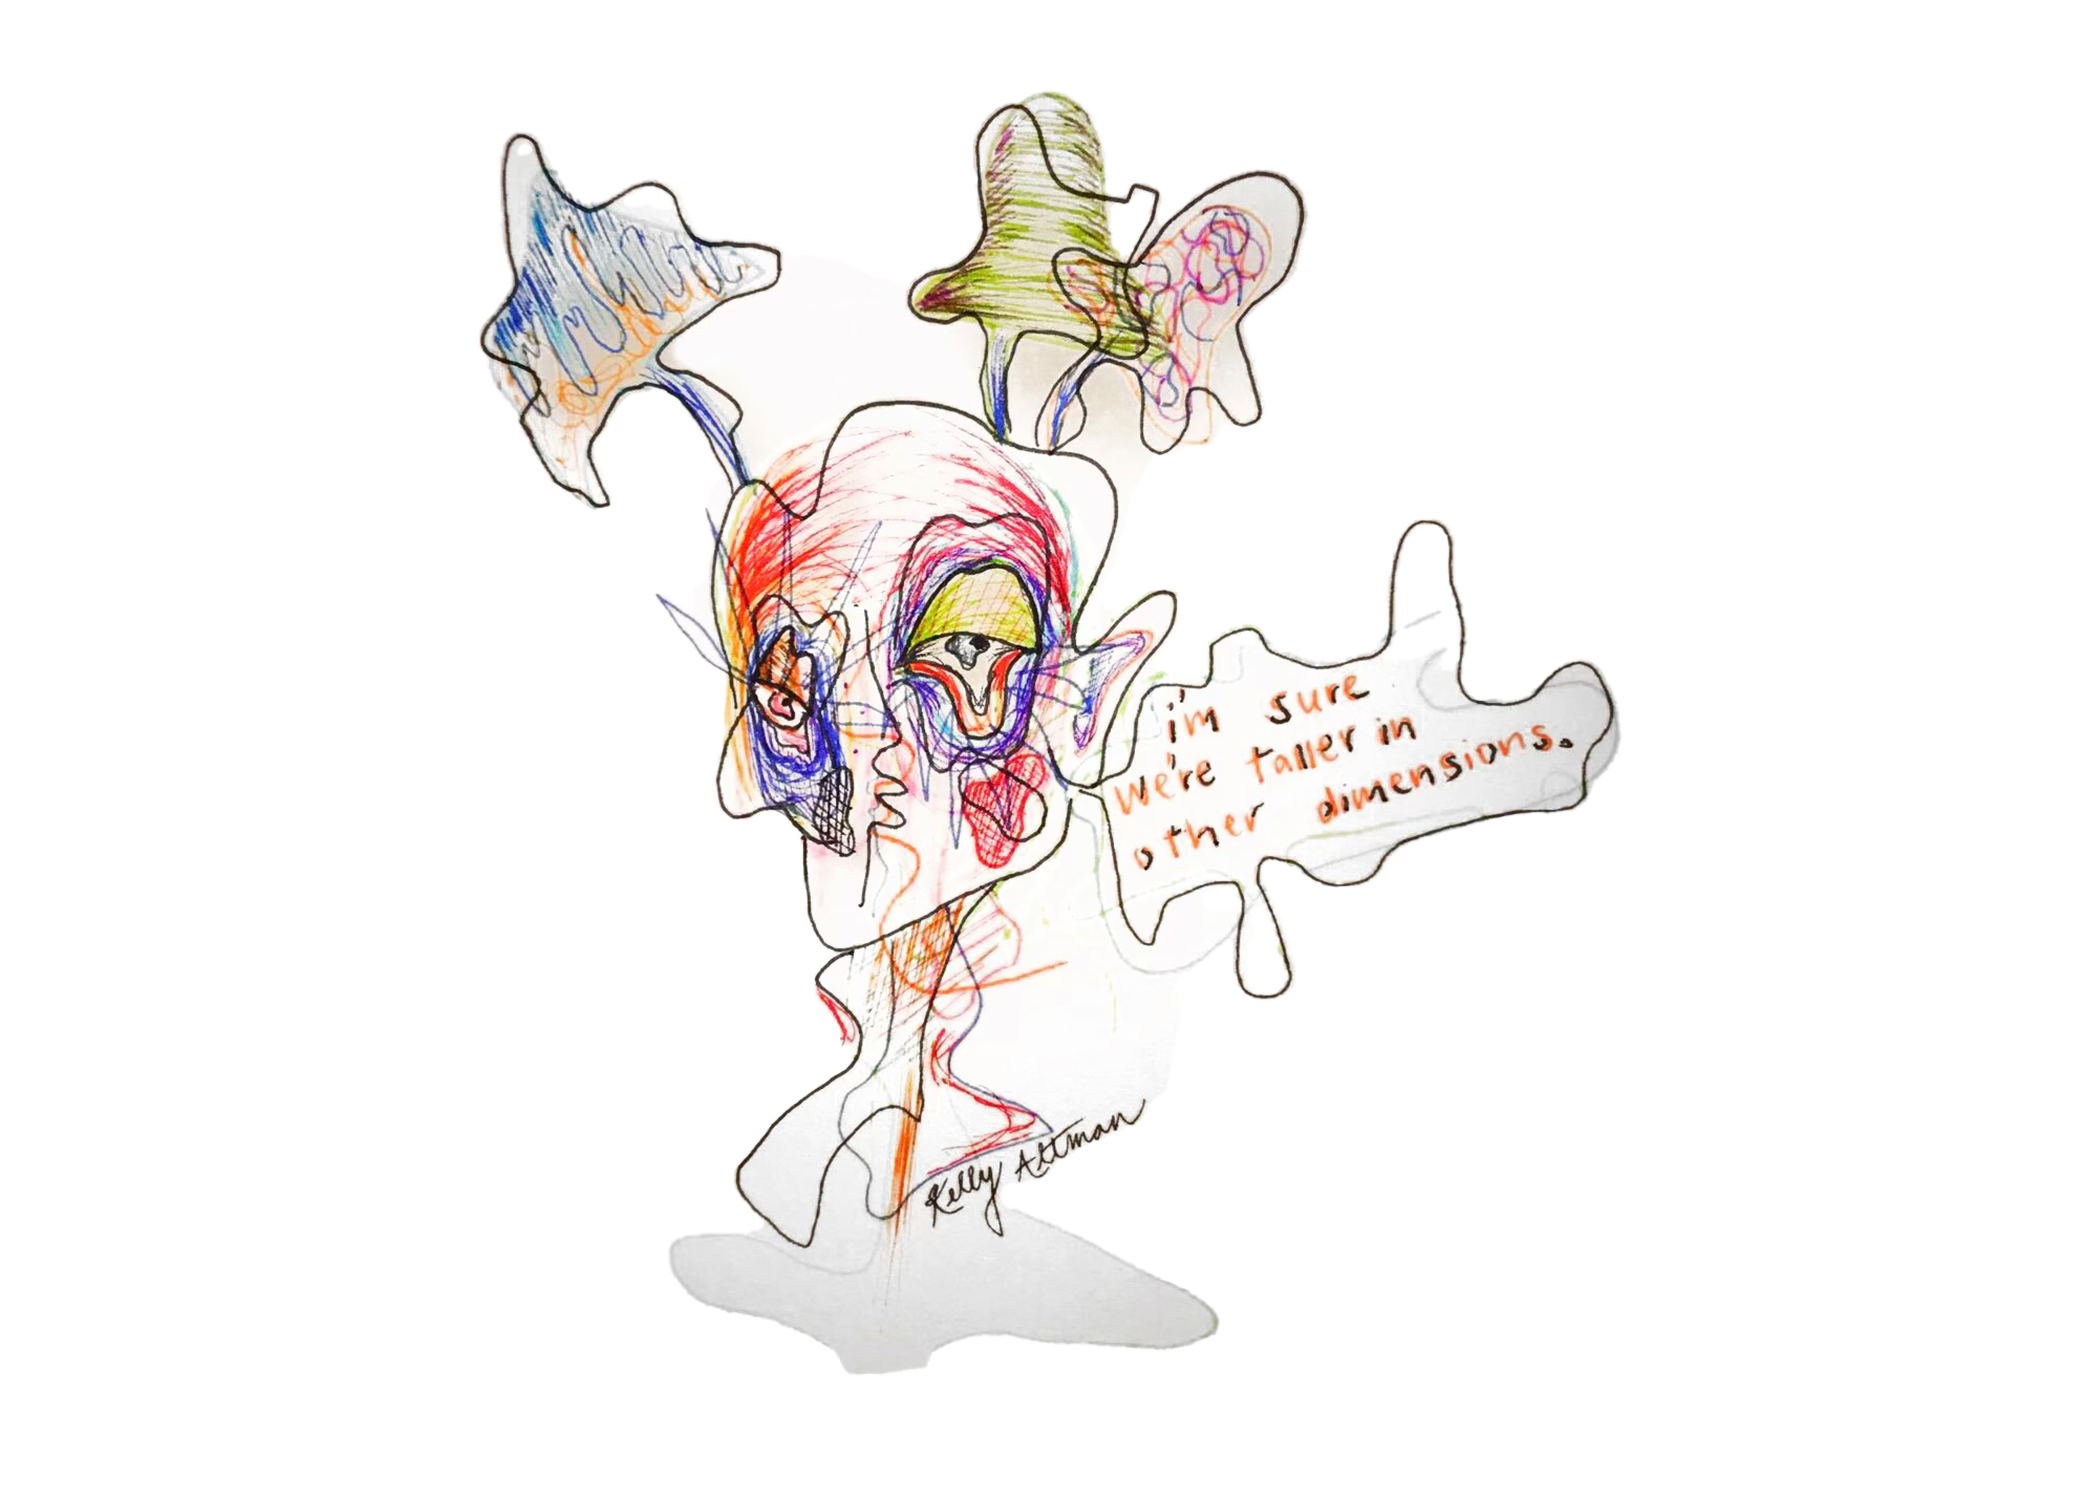 i'm sure
we're taller in
other dimensions.
Kelly Altman